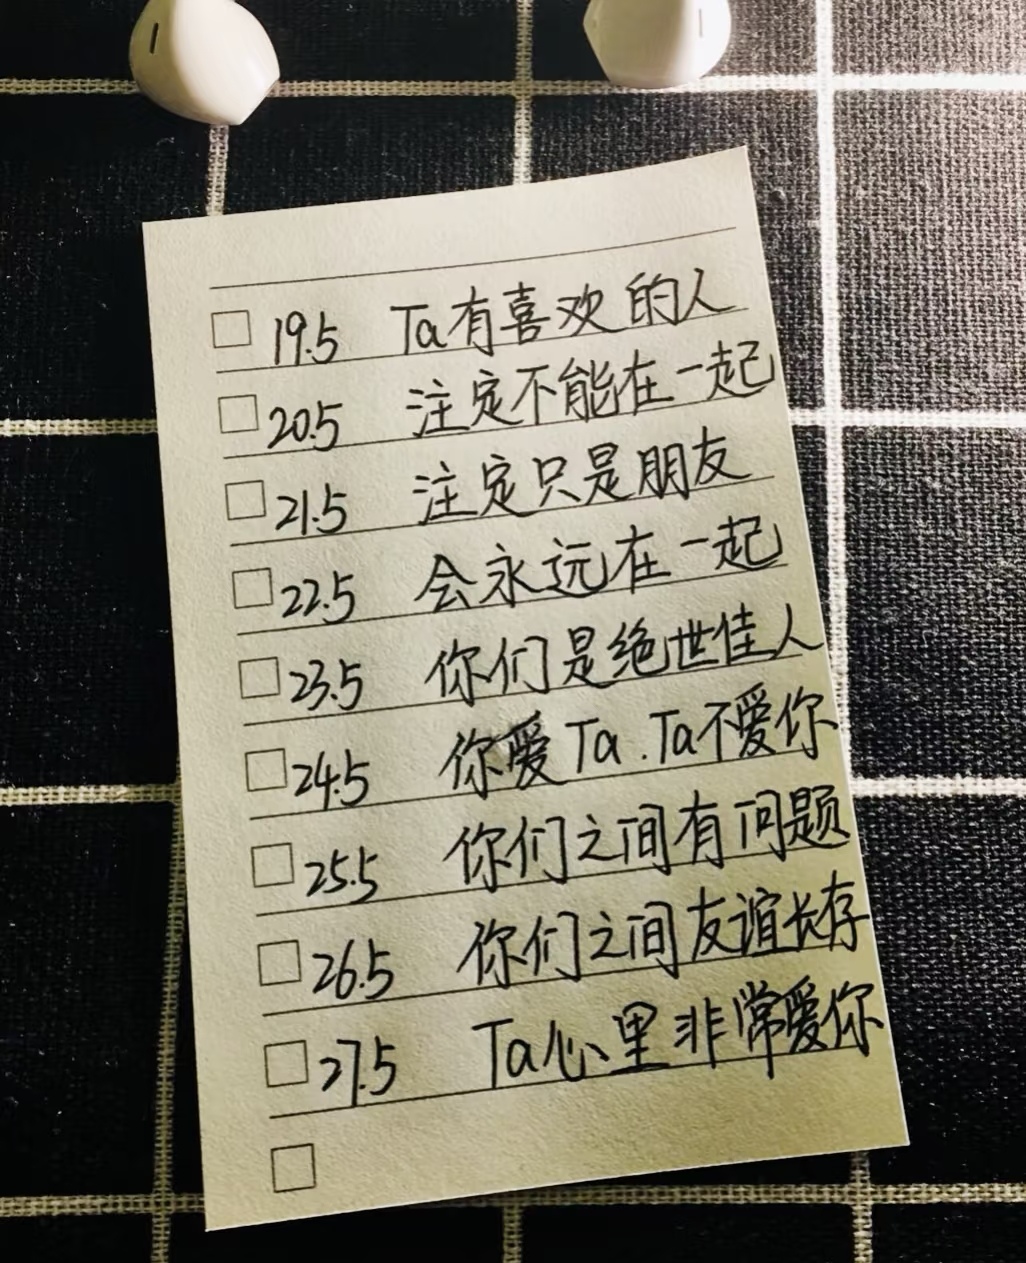 19.5 Ta有喜欢的人
20.5 注定不能在一起
21.5 注定只是朋友
22.5 会永远在一起
23.5 你们是绝世佳人
24.5 你爱Ta.Ta不爱你
25.5 你们之间有问题
26.5 你们之间友谊长存
27.5 Ta心里非常爱你